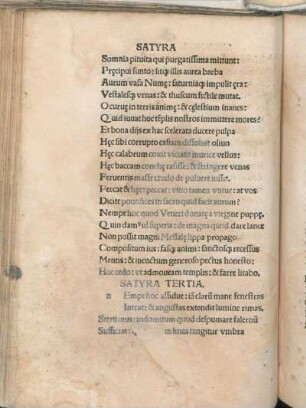 SATYRA
Somnia pituita qui purgatissima mittunt:
Pręcipui sunto: sitq; illis aurea barba
Aurum vasa Numę: saturniaq; impulit ęra:
Vestalesq; vrnas: & thuscum fictile mutat.
O curuę in terris animę: & cęlestium inanes:
Quid iuuat hoc tēplis nostros immittere mores?
Et bona dijs ex hac scelerata ducere pulpa
Hęc sibi corrupto casiam dissoluit oliuo
Hęc calabrum coxit vitiato murice vellus:
Hęc baccam conchę rasisse: & stringere venas
Feruentis massę crudo de puluere iussit.
Peccat & hęc: peccat: vitio tamen vtitur: at vos
Dicite pontifices: in sacris quid facit aurum?
Nempe hoc quod Veneri donatę a virgine puppę.
Quin damus id superis: de magna quod dare lance
Non possit magni Messalę lippa propago.
Compositum ius: fasq; animi: sanctosq; recessus
Mentis: & incoctum generoso pectus honesto:
Hoc cedo: vt admoueam templis: & farre litabo.
SATYRA TERTIA.
n Empe hoc assidue: iā clarū mane fenestras
Intrat: & angustas extendit lumine rimas.
Stertimus: indomitum quod despumare falernū
Sufficiat: linea tangitur vmbra